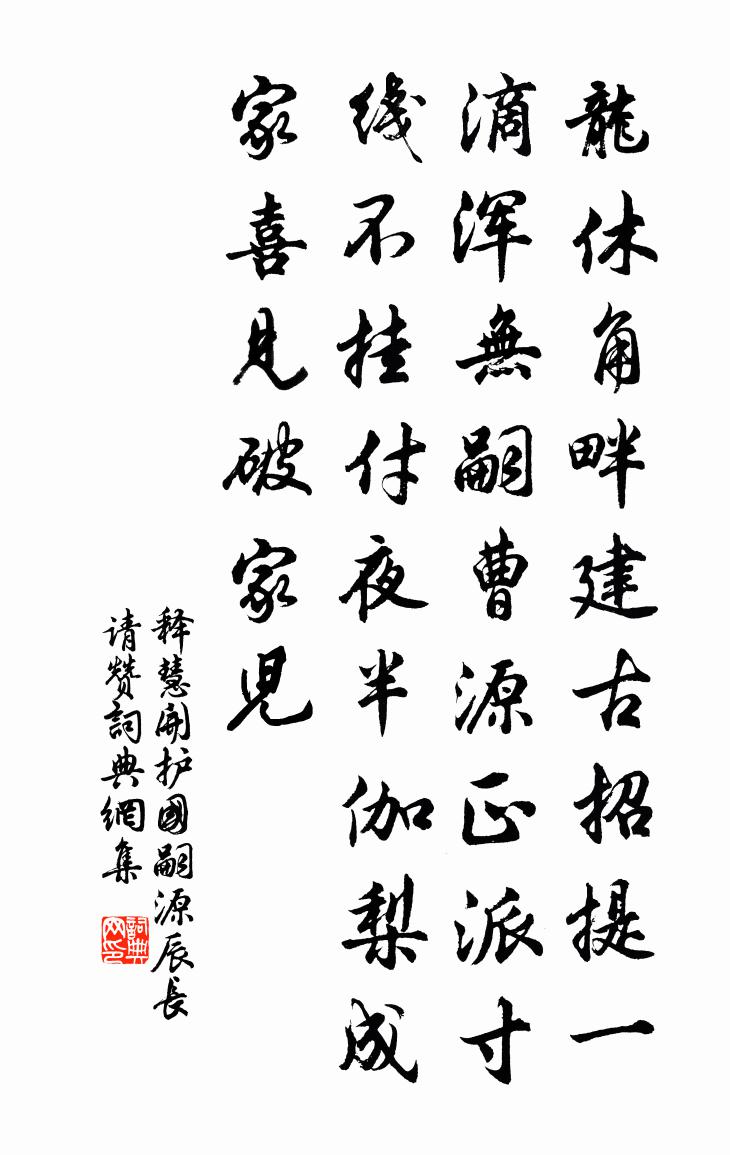 龍休角畔建古招提一
滴浑無嗣曹源正派寸
綫不挂付夜半伽梨成
家喜見破家児
释慧開护國嗣源辰長
请赞詞典網集
詞典网印